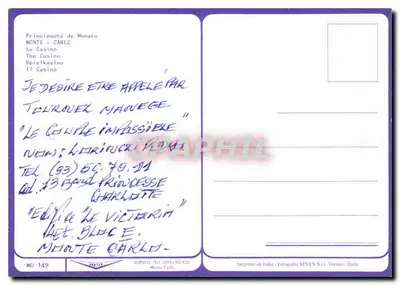 Principauté de Monaco
MONTE - CARLO
Le Casino
The Casino
Spielkasino
Il Casinò
JE DESIRE ETRE APPELÉ PAR
TOURNEZ MANEGE
"LE COUPLE IMPOSSIBLE"
NOM:
TEL (93) 50. 79. 11
ad. 13 Bd PRINCESSE
CHARLOTTE
"Le VICTORIA"
BLOC E.
MONTE CARLO.
MO 149
Monte-Carlo
Imprimé en Italie - Litografia SEVEN S.r.l. Verona - Italia